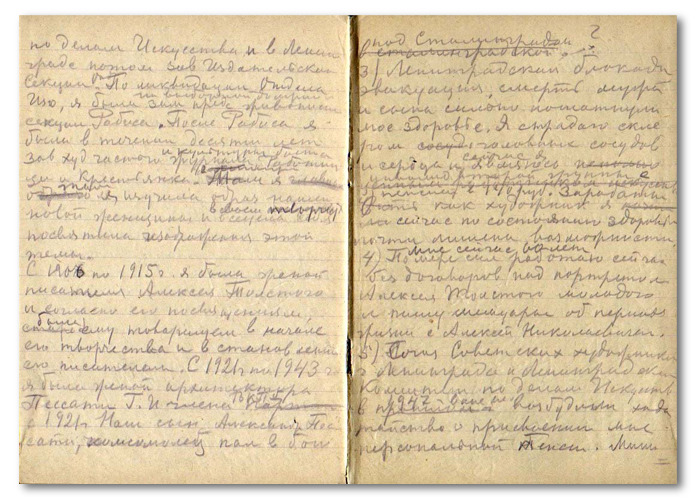 по делам Искусства и в Ленин
граде потом зав Издательской
Секции. По ликвидации Отдела
Изо, я была зам пред
секции Рабиса. После Рабиса я
была в течении десяти лет
зав худ частью журнала Работни
ца и Крестьянка.
я изучила образ нашей
новой женщины и
посвятила изображения этой
темы.
С 1906 по 1915г. я была женой
писателя Алексея Толстого
и согласно его посвящению,
была ему товарищем в начале
его творчества и в становлении
его писателем. С 1921г по 1943г
я была женой архитектора
Пессати Г. И члена
с 1921г Наш сын Александр Пес
сати, комсомолец пал в бою
под Сталинградом ?
3) Ленинградская блокада
эвакуация, смерть мужа
и сына сильно пошатнули
мое здоровье. Я страдаю скле
ром головных сосудов
и сердца и являюсь
инвалидом второй группы
как художник я
сейчас по состоянию здоровья
почти лишена возможности.
Мне сейчас
4) По мере сил работаю сейчас
без договоров над портретом
Алексея Толстого молодого
и пишу мемуары об периоде
жизни с Алексей Николаевичем.
5) Союз Советских художников
г Ленинграда и Ленинградский
Комитет по делам Искусств
в 1947 возбудили хода
тайство о присвоении мне
персональной Пенсии. Мини